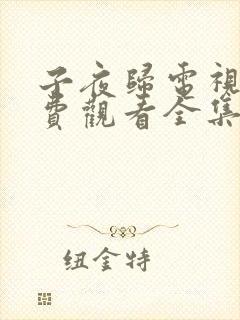 子夜歸電視
費觀看全集
纽金特